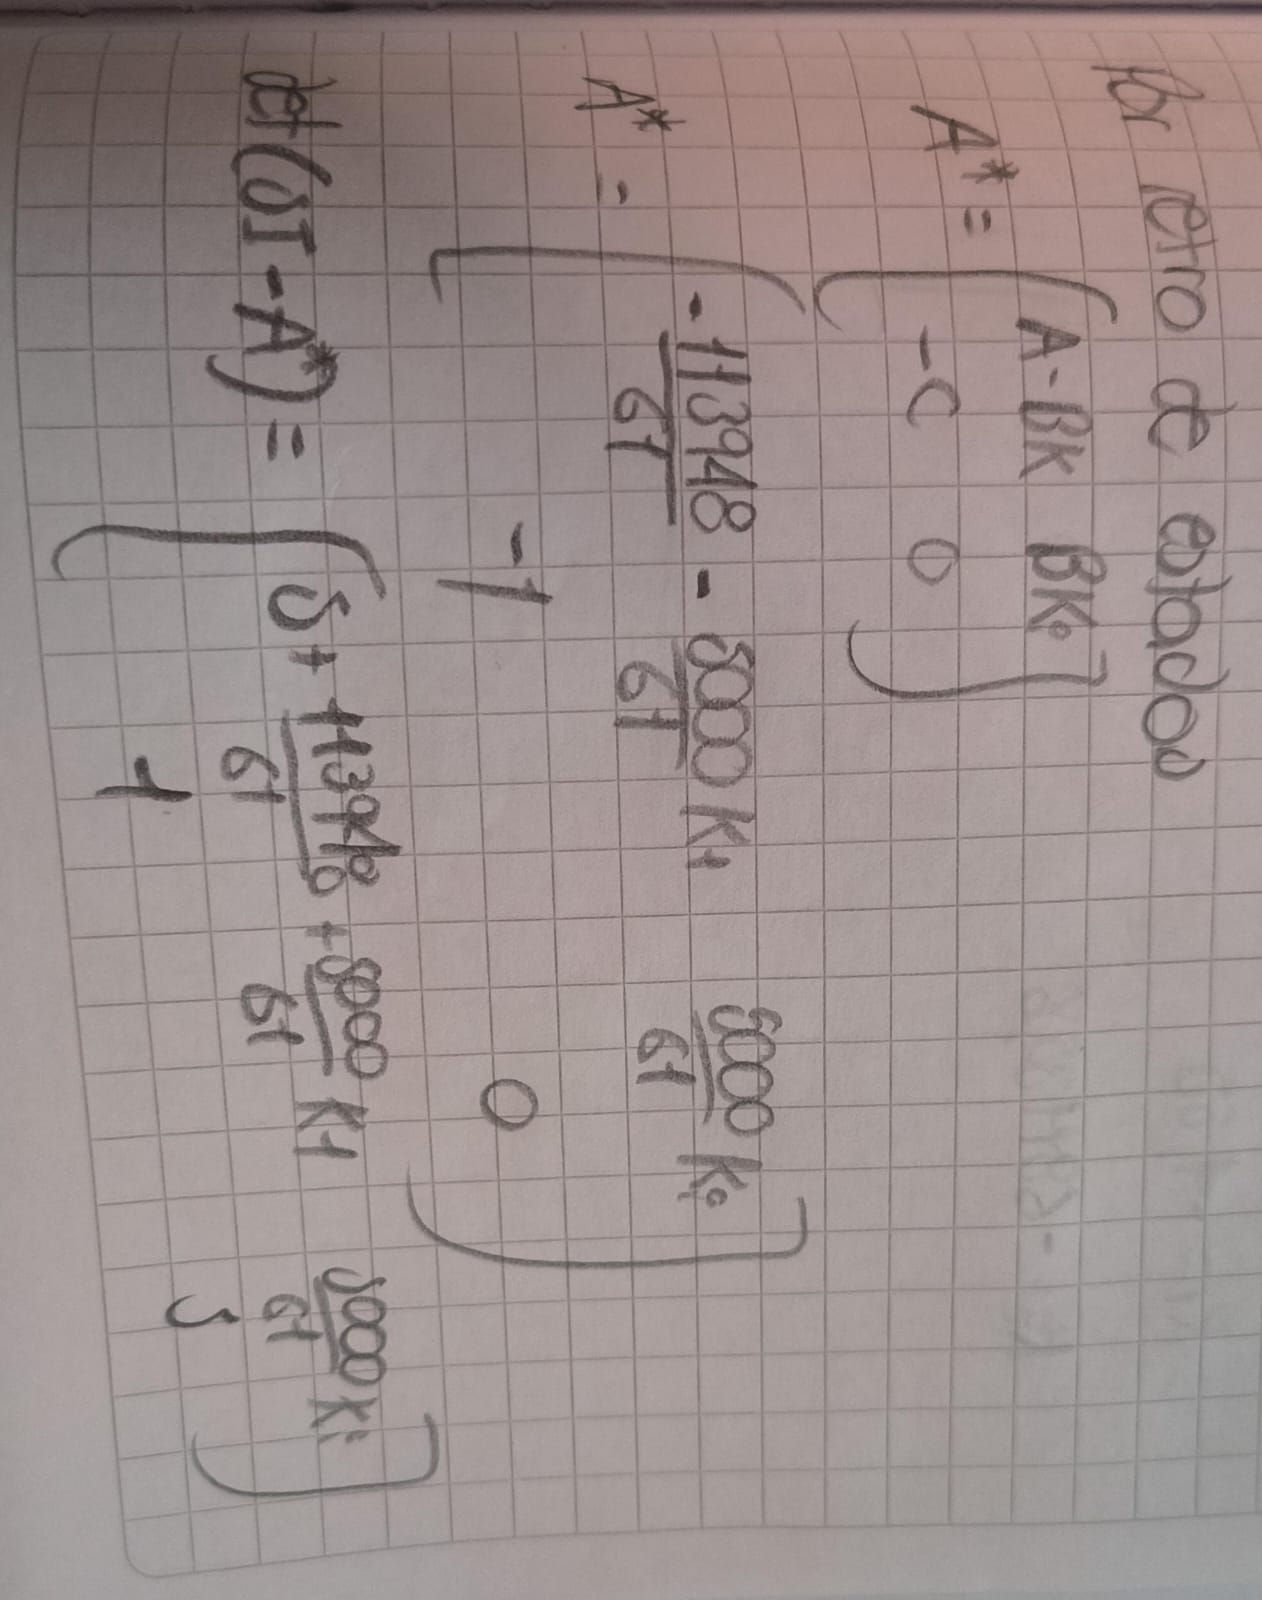 Por retro de estados
A* = [ A-BK BKi
-C 0 ]
A* = [ -113948/61 - 5000/61 K1 5000/61 Ki
-1 0 ]
det(SI-A*) = [ S + 113948/61 + 5000/61 K1 5000/61 Ki
1 S ]